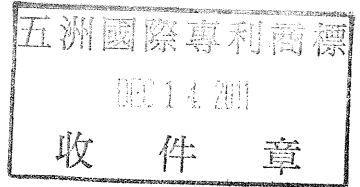 五洲國際專利商標
DEC 1 4. 2011
收件章